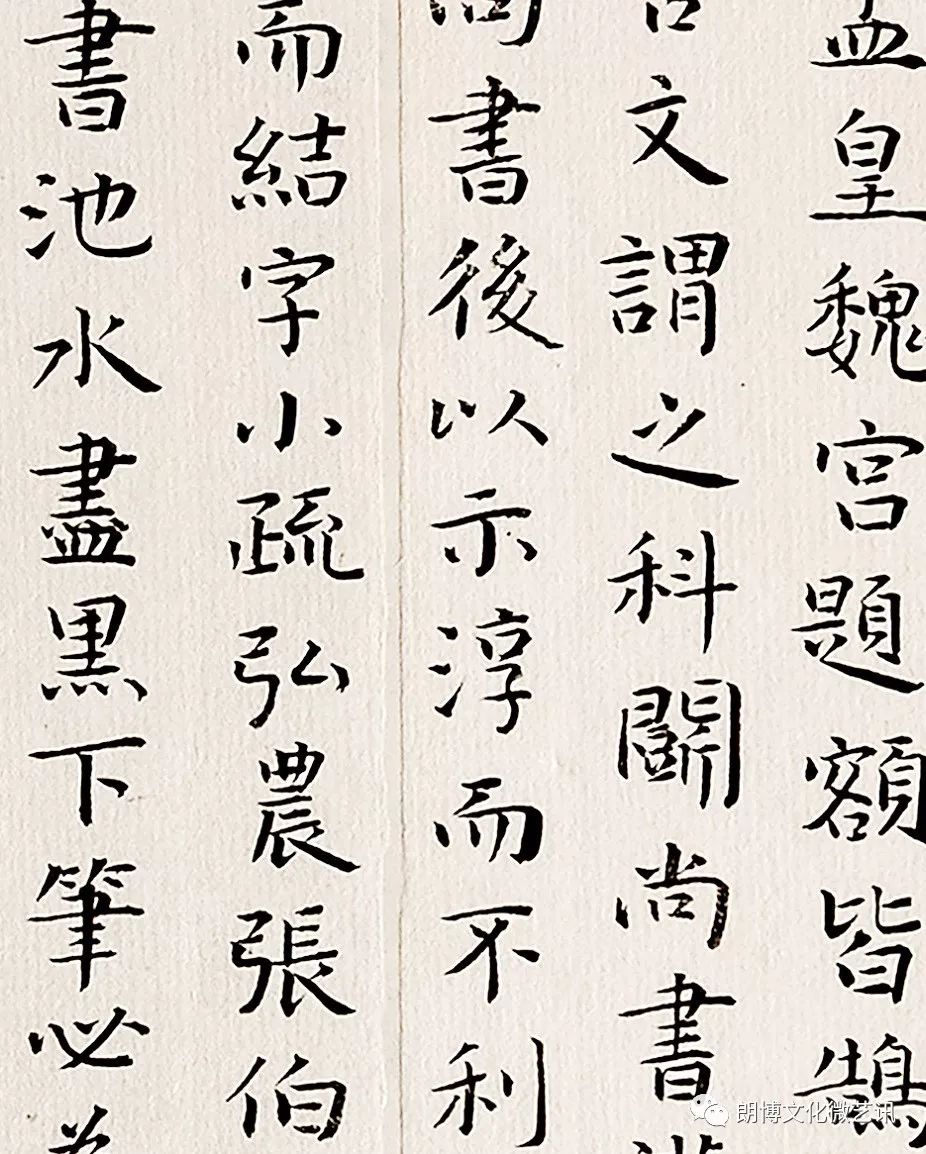 孟皇魏宫題額皆鵠
古文謂之科鬭尚書
尚書後以示淳而不利
而結字小疏弘農張伯
書池水盡黒下筆必為
朗博文化微艺讯